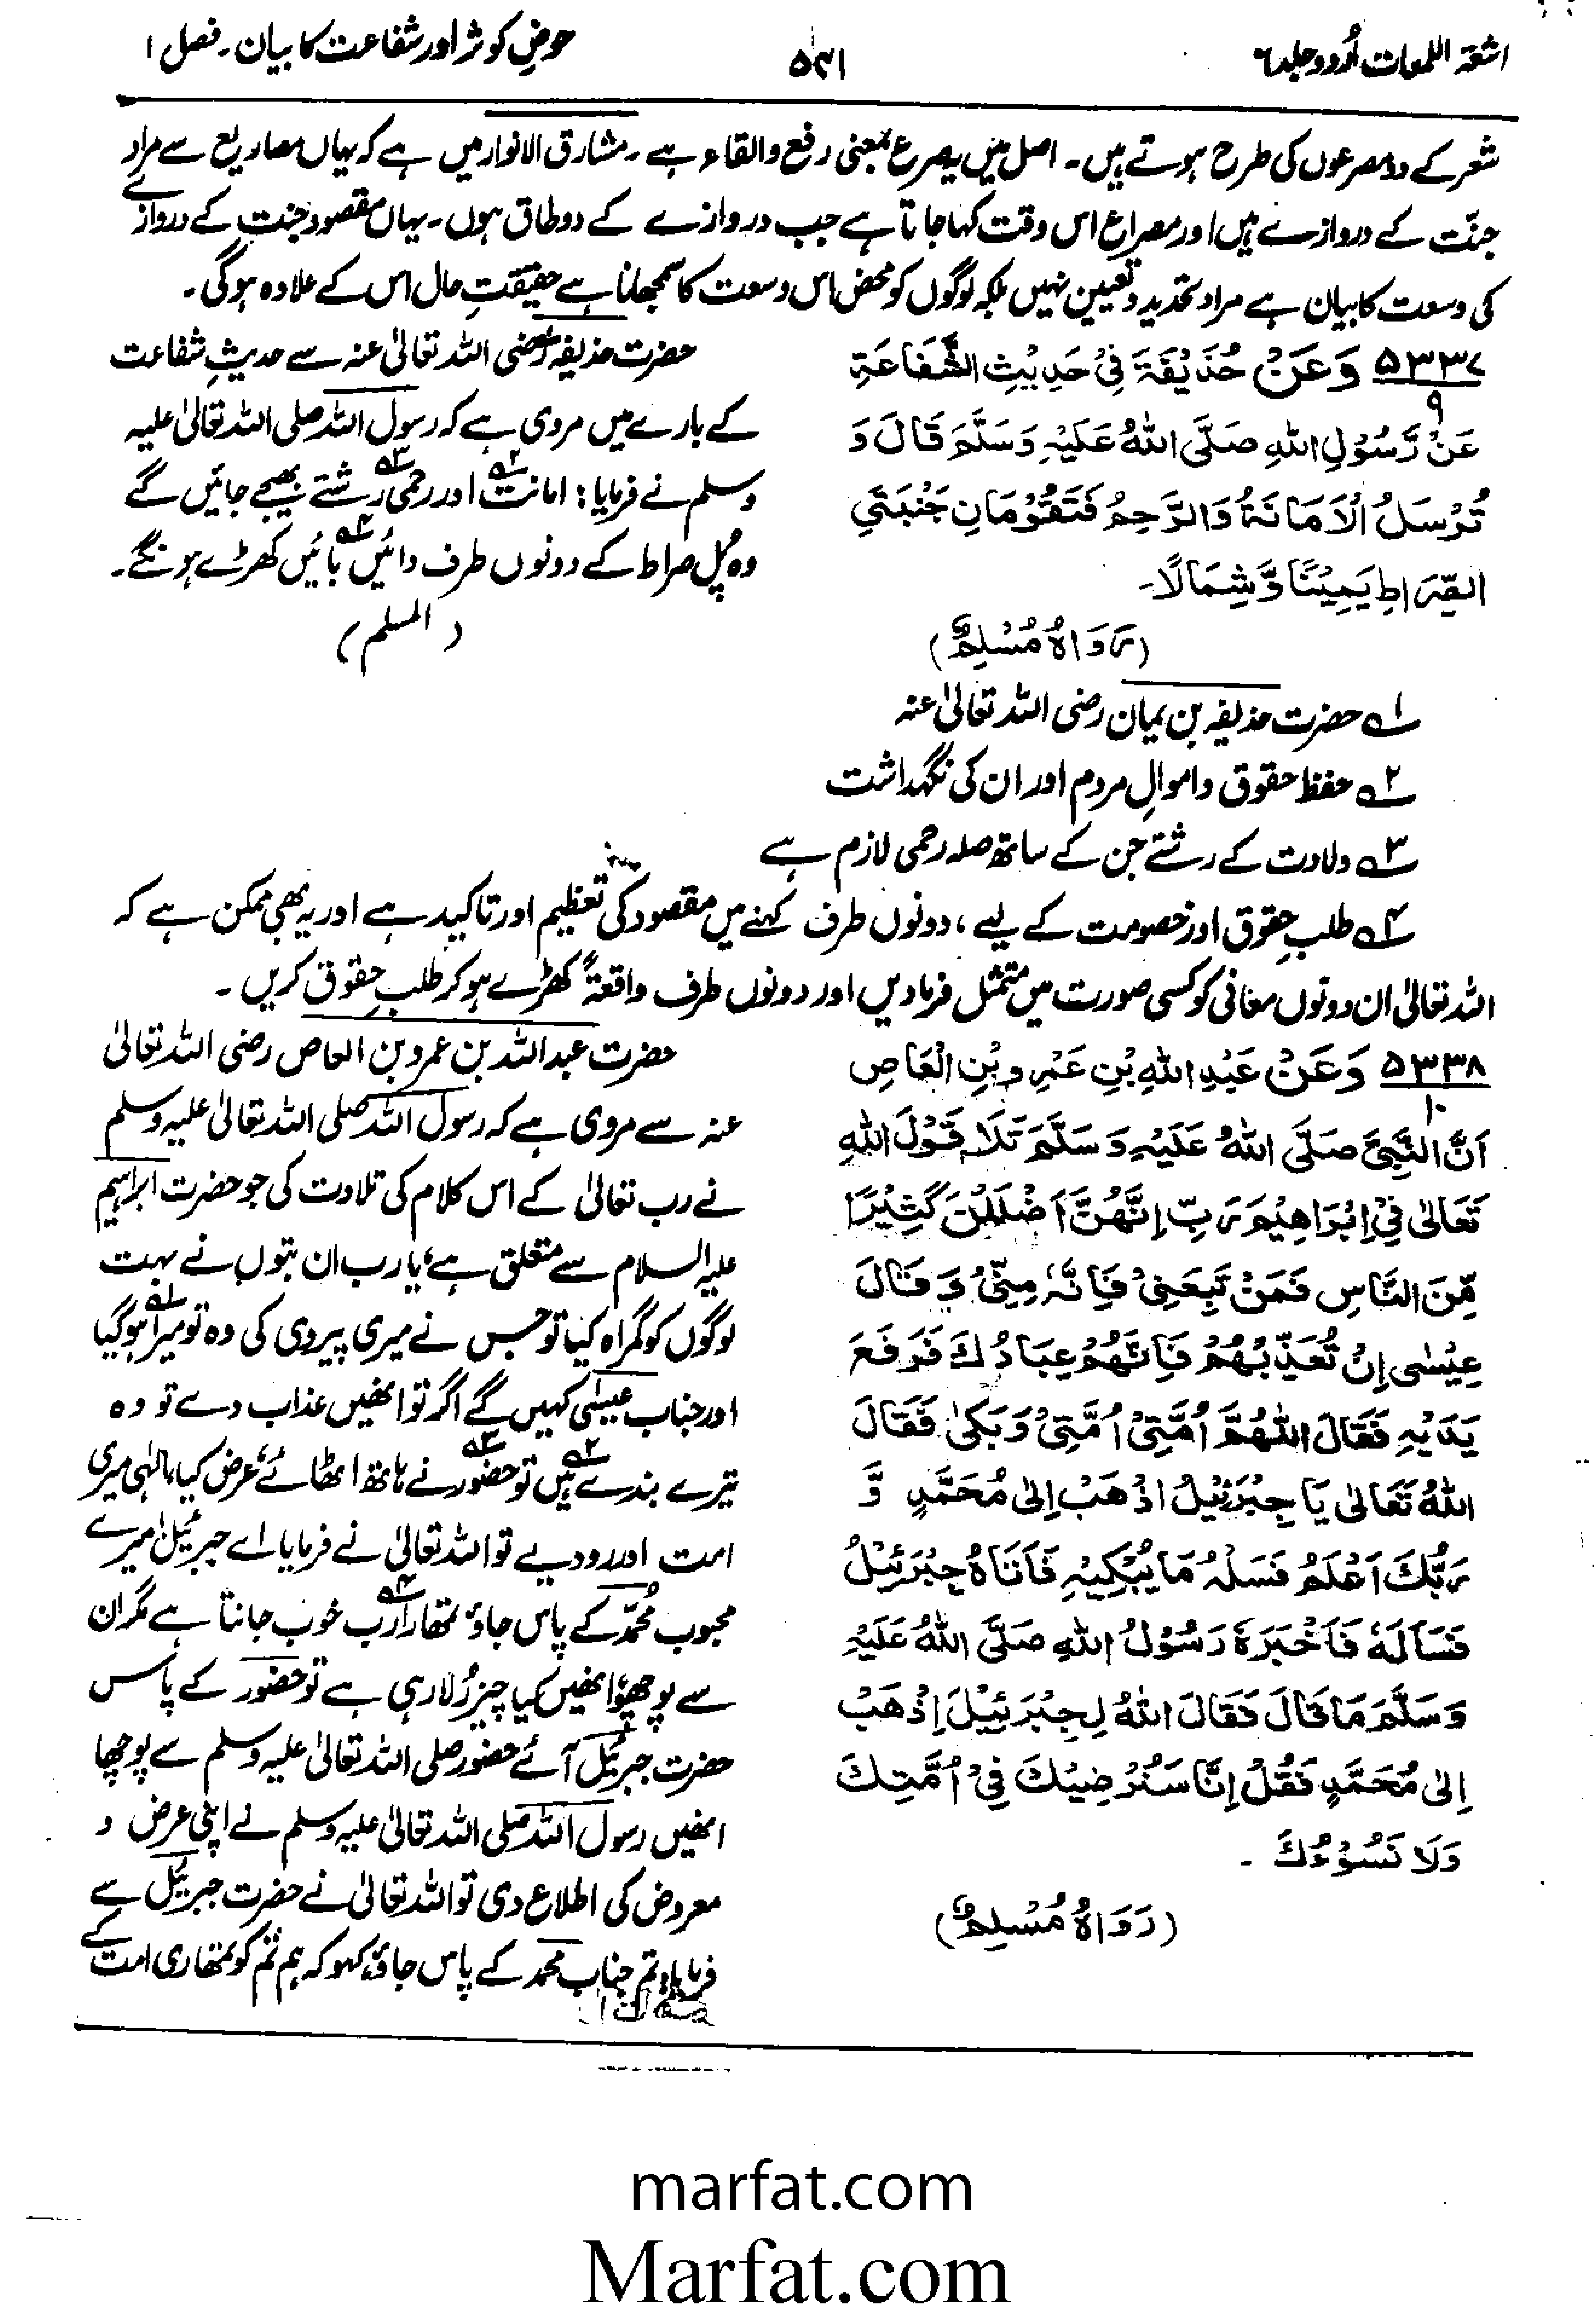 اشعۃ اللمعات اُردو جلد ٦
۵۳۱
حوضِ کوثر اور شفاعت کا بیان۔ فصل ۱
شعر کے دو مصرعوں کی طرح ہوتے ہیں۔ اصل میں یصرع بمعنی رفع والقاء ہے۔ مشارق الانوار میں ہے کہ یہاں مصاریع سے مراد
جنّت کے دروازے ہیں اور مصراع اس وقت کہا جاتا ہے جب دروازے کے دو طاق ہوں۔ یہاں مقصود جنت کے دروازے
کی وسعت کا بیان ہے مراد تحدید و تعیین نہیں بلکہ لوگوں کو محض اس وسعت کا سمجھانا ہے حقیقتِ حال اس کے علاوہ ہوگی۔
۵۳۳۷ وَعَنْ حُذَيْفَةَ فِيْ حَدِيْثِ الشَّفَاعَةِ
۹
عَنْ رَّسُوْلِ اللهِ صَلَّى اللهُ عَلَيْهِ وَسَلَّمَ قَالَ وَ
تُرْسَلُ الْاَمَانَةُ وَالرَّحِمُ فَتَقُوْمَانِ جَنْبَتَيِ
الصِّرَاطِ يَمِيْنًا وَّشِمَالًا۔
(رَوَاهُ مُسْلِمٌ)
حضرت حذیفہ رضی اللہ تعالیٰ عنہ سے حدیثِ شفاعت
کے بارے میں مروی ہے کہ رسول اللہ صلی اللہ تعالیٰ علیہ
وسلم نے فرمایا: امانت۲ اور رحمی رشتے۳ بھیجے جائیں گے
وہ پُل صراط کے دونوں طرف دائیں بائیں۴ کھڑے ہونگے۔
(المسلم)
۱ حضرت حذیفہ بن یمان رضی اللہ تعالیٰ عنہ
۲ حفظ حقوق و اموالِ مردم اور ان کی نگہداشت
۳ ولادت کے رشتے جن کے ساتھ صلہ رحمی لازم ہے
۴ طلبِ حقوق اور خصومت کے لیے، دونوں طرف کہنے میں مقصود کی تعظیم اور تاکید ہے اور یہ بھی ممکن ہے کہ
اللہ تعالیٰ ان دونوں معانی کو کسی صورت میں متمثل فرمادیں اور دونوں طرف واقعۃً کھڑے ہوکر طلبِ حقوق کریں۔
۵۳۳۸ وَعَنْ عَبْدِ اللهِ بْنِ عَمْرِو بْنِ الْعَاصِ
۱۰
اَنَّ النَّبِيَّ صَلَّى اللهُ عَلَيْهِ وَسَلَّمَ تَلَا قَوْلَ اللهِ
تَعَالٰى فِيْ اِبْرَاهِيْمَ رَبِّ اِنَّهُنَّ اَضْلَلْنَ كَثِيْرًا
مِّنَ النَّاسِ فَمَنْ تَبِعَنِيْ فَاِنَّهٗ مِنِّيْ وَقَالَ
عِيْسٰى اِنْ تُعَذِّبْهُمْ فَاِنَّهُمْ عِبَادُكَ فَرَفَعَ
يَدَيْهِ فَقَالَ اللّٰهُمَّ اُمَّتِيْ اُمَّتِيْ وَبَكٰى فَقَالَ
اللهُ تَعَالٰى يَا جِبْرَئِيْلُ اذْهَبْ اِلٰى مُحَمَّدٍ وَّ
رَبُّكَ اَعْلَمُ فَسَلْهُ مَا يُبْكِيْهِ فَاَتَاهُ جِبْرَئِيْلُ
فَسَاَلَهٗ فَاَخْبَرَهٗ رَسُوْلُ اللهِ صَلَّى اللهُ عَلَيْهِ
وَسَلَّمَ مَا قَالَ فَقَالَ اللهُ لِجِبْرَئِيْلَ اِذْهَبْ
اِلٰى مُحَمَّدٍ فَقُلْ اِنَّا سَنُرْضِيْكَ فِيْ اُمَّتِكَ
وَلَا نَسُوْءُكَ ۔
(رَوَاهُ مُسْلِمٌ)
حضرت عبد اللہ بن عمرو بن العاص رضی اللہ تعالیٰ
عنہ سے مروی ہے کہ رسول اللہ صلی اللہ تعالیٰ علیہ وسلم
نے رب تعالیٰ کے اس کلام کی تلاوت کی جو حضرت ابراہیم
علیہ السلام سے متعلق ہے، یا رب ان بتوں نے بہت
لوگوں کو گمراہ کیا تو جس نے میری پیروی کی وہ تو میرا۱ ہوگیا
اور جناب عیسیٰ کہیں گے اگر تو انھیں عذاب دے تو وہ
تیرے بندے ہیں۲ تو حضور۳ نے ہاتھ اٹھائے، عرض کیا، الٰہی میری
امت اور رو دیے تو اللہ تعالیٰ نے فرمایا اے جبرئیل میرے
محبوب محمّد کے پاس جاؤ تمھارا۴ رب خوب جانتا ہے مگر ان
سے پوچھو، انھیں کیا چیز رُلا رہی ہے تو حضور کے پاس
حضرت جبرئیل آئے حضور صلی اللہ تعالیٰ علیہ وسلم سے پوچھا
انھیں رسول اللہ صلی اللہ تعالیٰ علیہ وسلم نے اپنی عرض و
معروض کی اطلاع دی تو اللہ تعالیٰ نے حضرت جبرئیل سے
فرمایا، تم جناب محمد کے پاس جاؤ، کہو کہ ہم تم کو تمھاری امت کے
marfat.com
Marfat.com